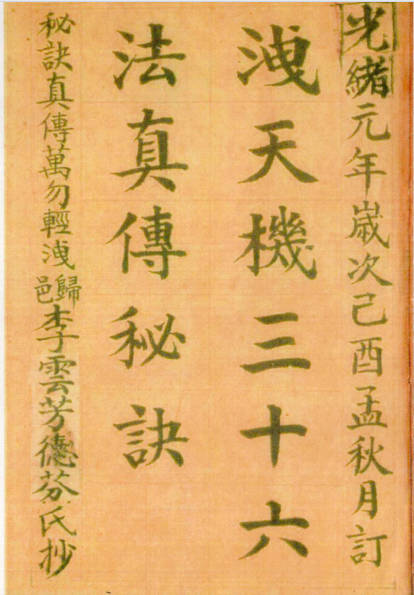 光緒元年嵗次己酉孟秋月訂
洩天機三十六
法真傳秘訣
秘訣真傳萬勿輕洩歸邑李雲芳德芬氏抄